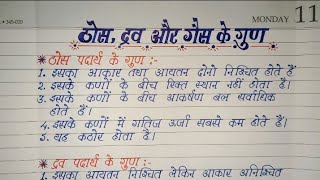 • 345-020
MONDAY 11
ठोस, द्रव और गैस के गुण
* ठोस पदार्थ के गुण :-
1. इसका आकार तथा आयतन दोनो निश्चित होते हैं
2. इसके कणों के बीच रिक्त स्थान नहीं होता है।
3. इसके कणों के बीच आकर्षण बल सर्वाधिक
होते हैं।
4. इसके कणों में गतिज ऊर्जा सबसे कम होते हैं।
5. यह कठोर होता है।
* द्रव पदार्थ के गुण :-
1. इसका आयतन निश्चित लेकिन आकार अनिश्चित